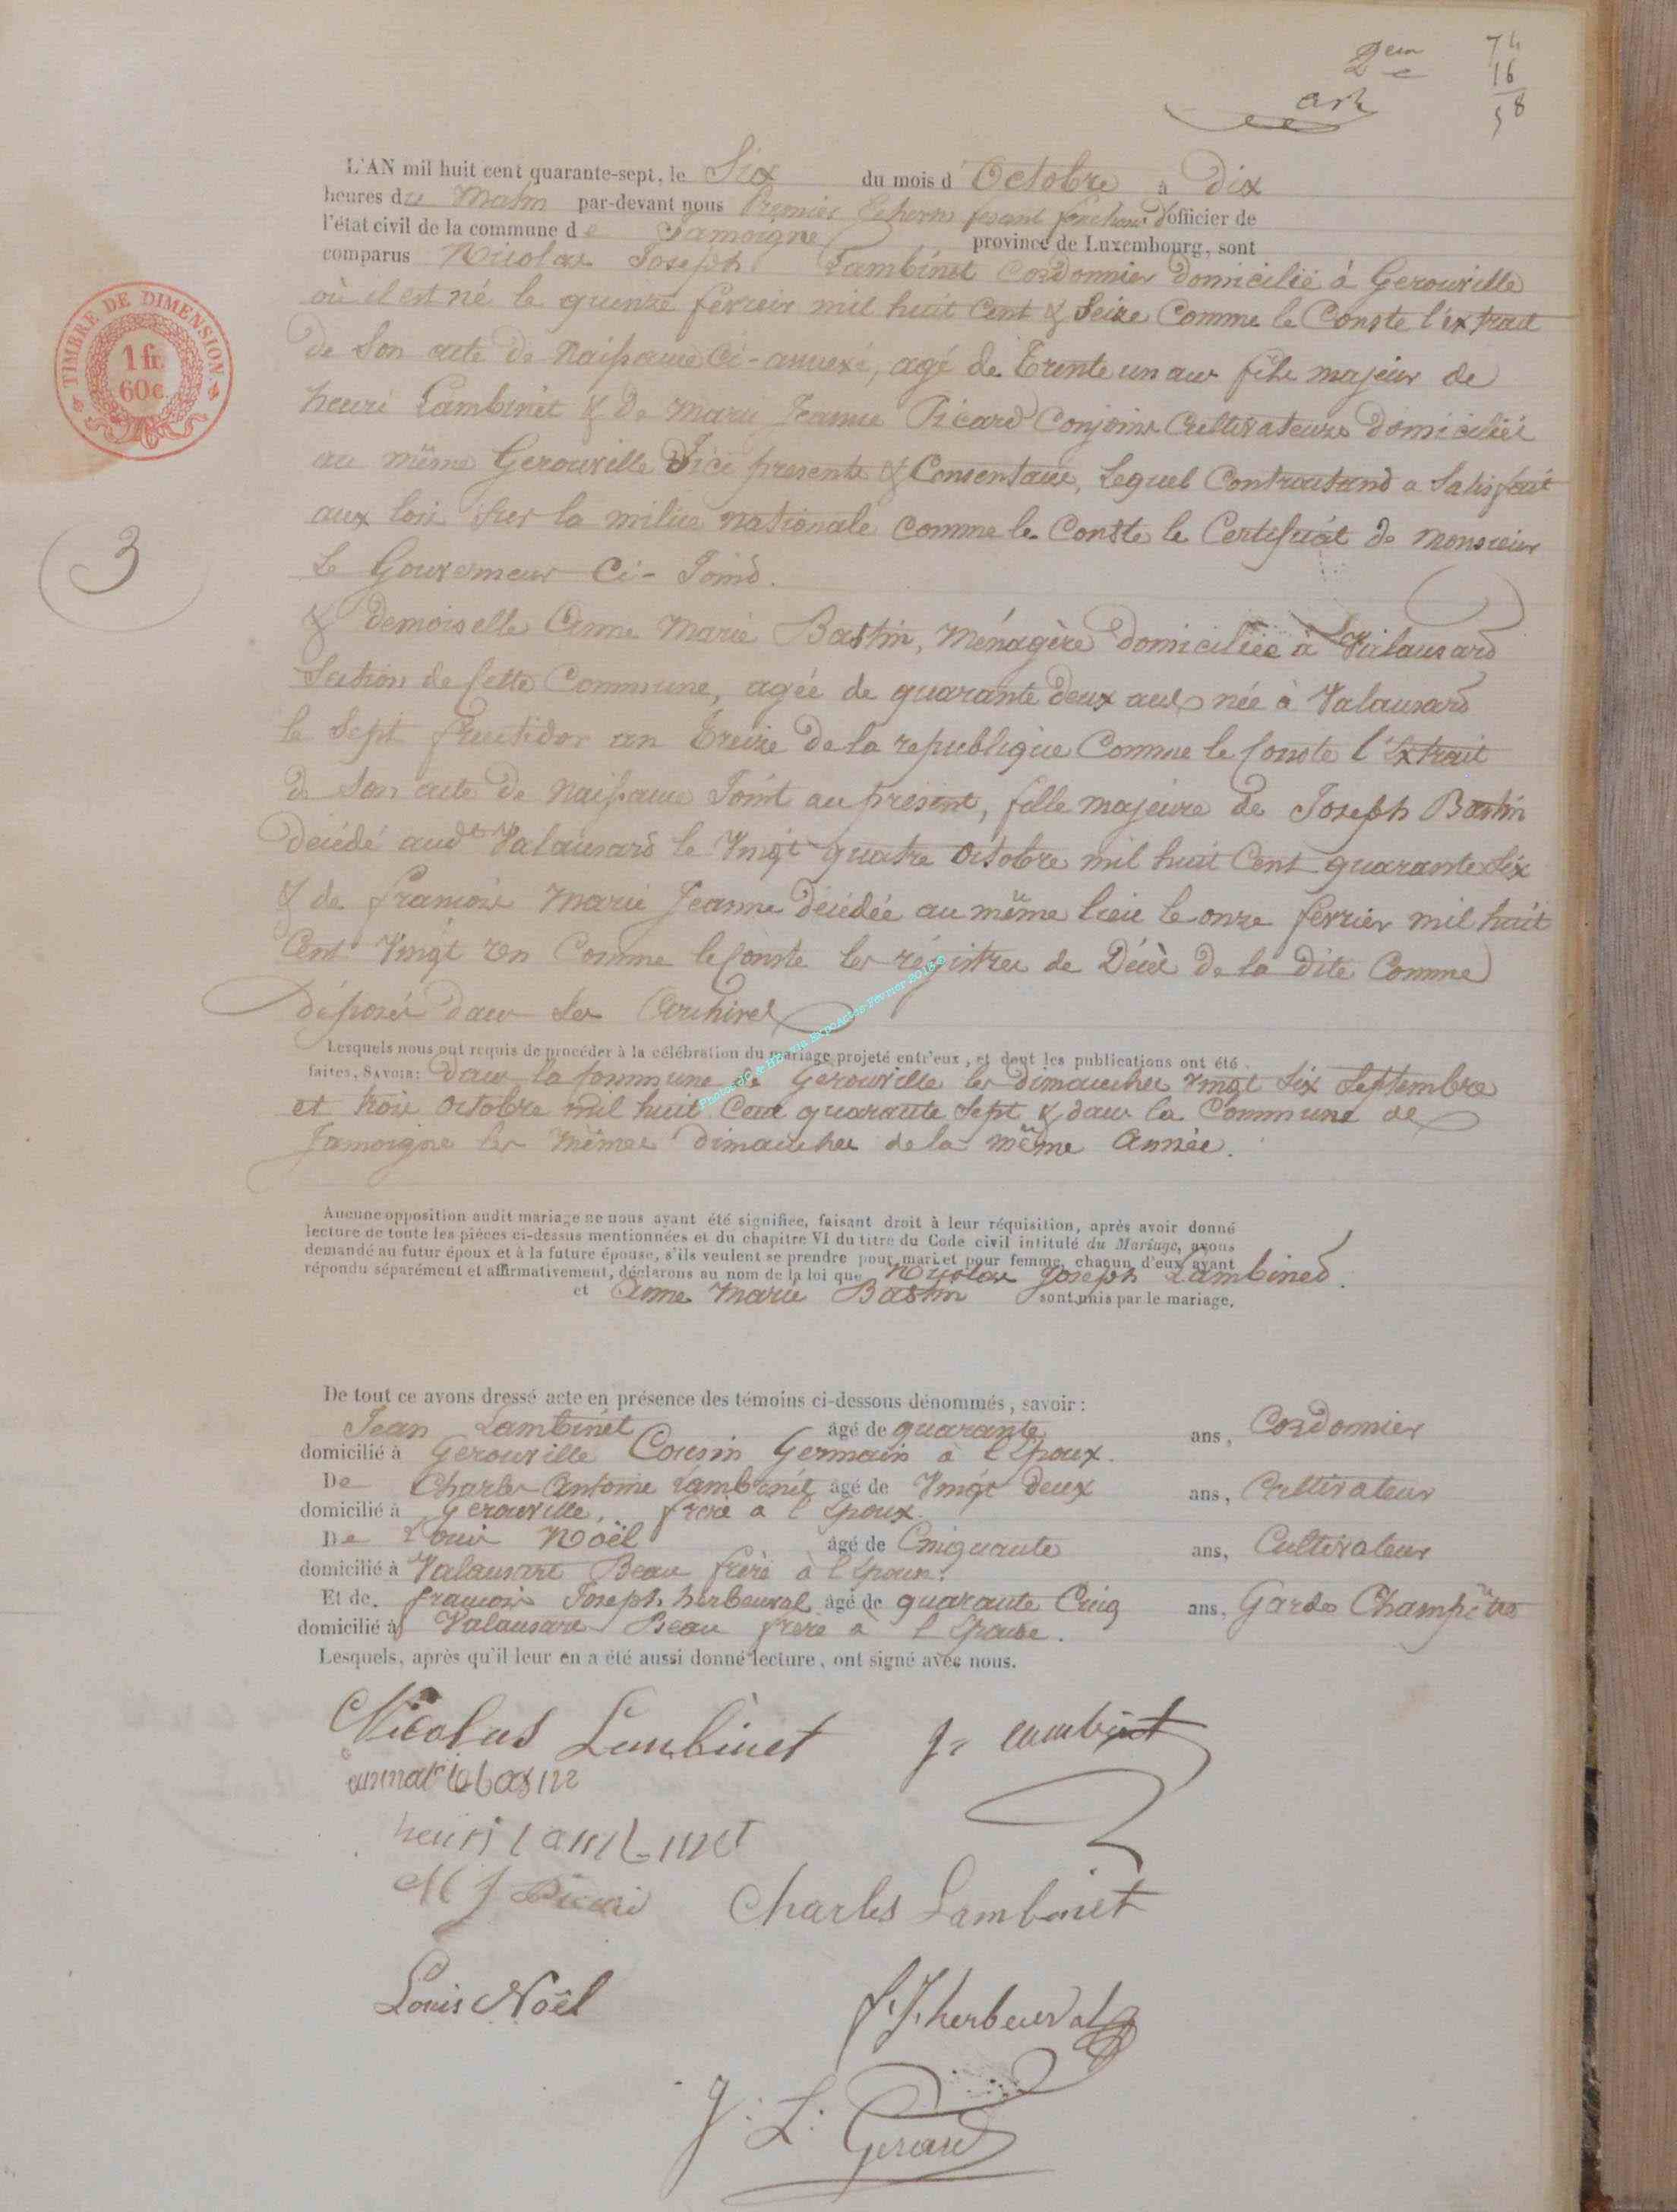 2em
acte
74
16
58
TIMBRE DE DIMENSION
1 fr.
60c.
3
L'AN mil huit cent quarante-sept, le Six du mois d'Octobre à dix
heures du Matin par-devant nous Premier Echevin fesant fonctions d'officier de
l'état civil de la commune de Jamoigne province de Luxembourg, sont
comparus Nicolas Joseph Lambinet Cordonnier domicilié à Gerouville
où il est né le quinze fevreir mil huit Cent & Seize Comme le Conste l'extrait
de Son acte de Naissance Ci-annexé, agé de Trente un ans fils majeur de
henri Lambinet & de marie Jeanne Picard Conjoins Cultivateurs domiciliés
au même Gerouville ici presents & Consentans, Lequel Contractand a Satisfait
aux lois sur la milice nationale comme le Conste le Certificat de Monsieur
Le Gouverneur Ci-Joind.
& demoiselle Anne Marie Bastin, Ménagère domiciliée à Valansard
Section de Cette Commune, agée de quarante deux ans née à Valansard
le Sept fructidor an Treize de la republique Comme le Conste l'Extrait
de Son acte de Naissance Joint au présent, fille majeure de Joseph Bastin
décédé audt Valansard le Vingt quatre Octobre mil huit Cent quarante Six
& de francois Marie Jeanne décédée au même lieu le onze fevrier mil huit
Cent Vingt un Comme le Conste les régistres de Décès de la dite Comme
déposés dans les Archives
Lesquels nous ont requis de procéder à la célébration du mariage projeté entr'eux, et dont les publications ont été
faites, SAVOIR: dans la Commune de Gerouville les dimanches vingt Six Septembre
et trois Octobre mil huit Cent quarante Sept & dans la Commune de
Jamoigne les mêmes dimanches de la même Année.
Photos JC & H Denis ExpoActes Février 2016 ©
Aucune opposition audit mariage ne nous ayant été signifiée, faisant droit à leur réquisition, après avoir donné
lecture de toute les pièces ci-dessus mentionnées et du chapitre VI du titre du Code civil intitulé du Mariage, avons
demandé au futur époux et à la future épouse, s'ils veulent se prendre pour mari et pour femme, chacun d'eux ayant
répondu séparément et affirmativement, déclarons au nom de la loi que Nicolas Joseph Lambined.
et Anne Marie Bastin sont unis par le mariage.
De tout ce avons dressé acte en présence des témoins ci-dessous dénommés, savoir:
Jean Lambinet âgé de quarante ans, Cordonnier
domicilié à Gerouville Cousin Germain à l'Epoux.
De Charles Antoine Lambinet âgé de Vingt deux ans, Cultivateur
domicilié à Gerouville, frere a l'Epoux.
De Louis Noël âgé de Cinquante ans, Cultivateur
domicilié à Valansart Beau frère à l'Epouse.
Et de. francois Joseph herbeuval âgé de quarante Cinq ans, Garde Champêtre
domicilié à Valansard Beau frère à l'Epouse.
Lesquels, après qu'il leur en a été aussi donné lecture, ont signé avec nous.
Nicolas Lambinet J. Lambinet
henri Lambinet
M J Picard Charles Lambinet
Louis Noël f. J. herbeuval
J: L: Gerard